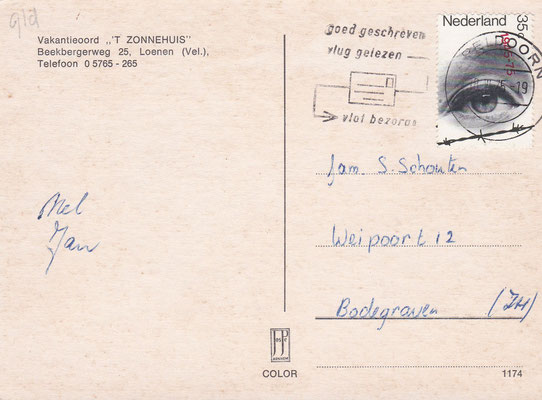 Vakantieoord ,,'T ZONNEHUIS''
Beekbergerweg 25, Loenen (Vel.),
Telefoon 0 5765 - 265
goed geschreven
vlug gelezen
vlot bezorgd
Nederland
35c
1945-75
Fam. S. Schouten
Weipoort 12
Bodegraven (ZH)
Nel
Jan
COLOR
1174